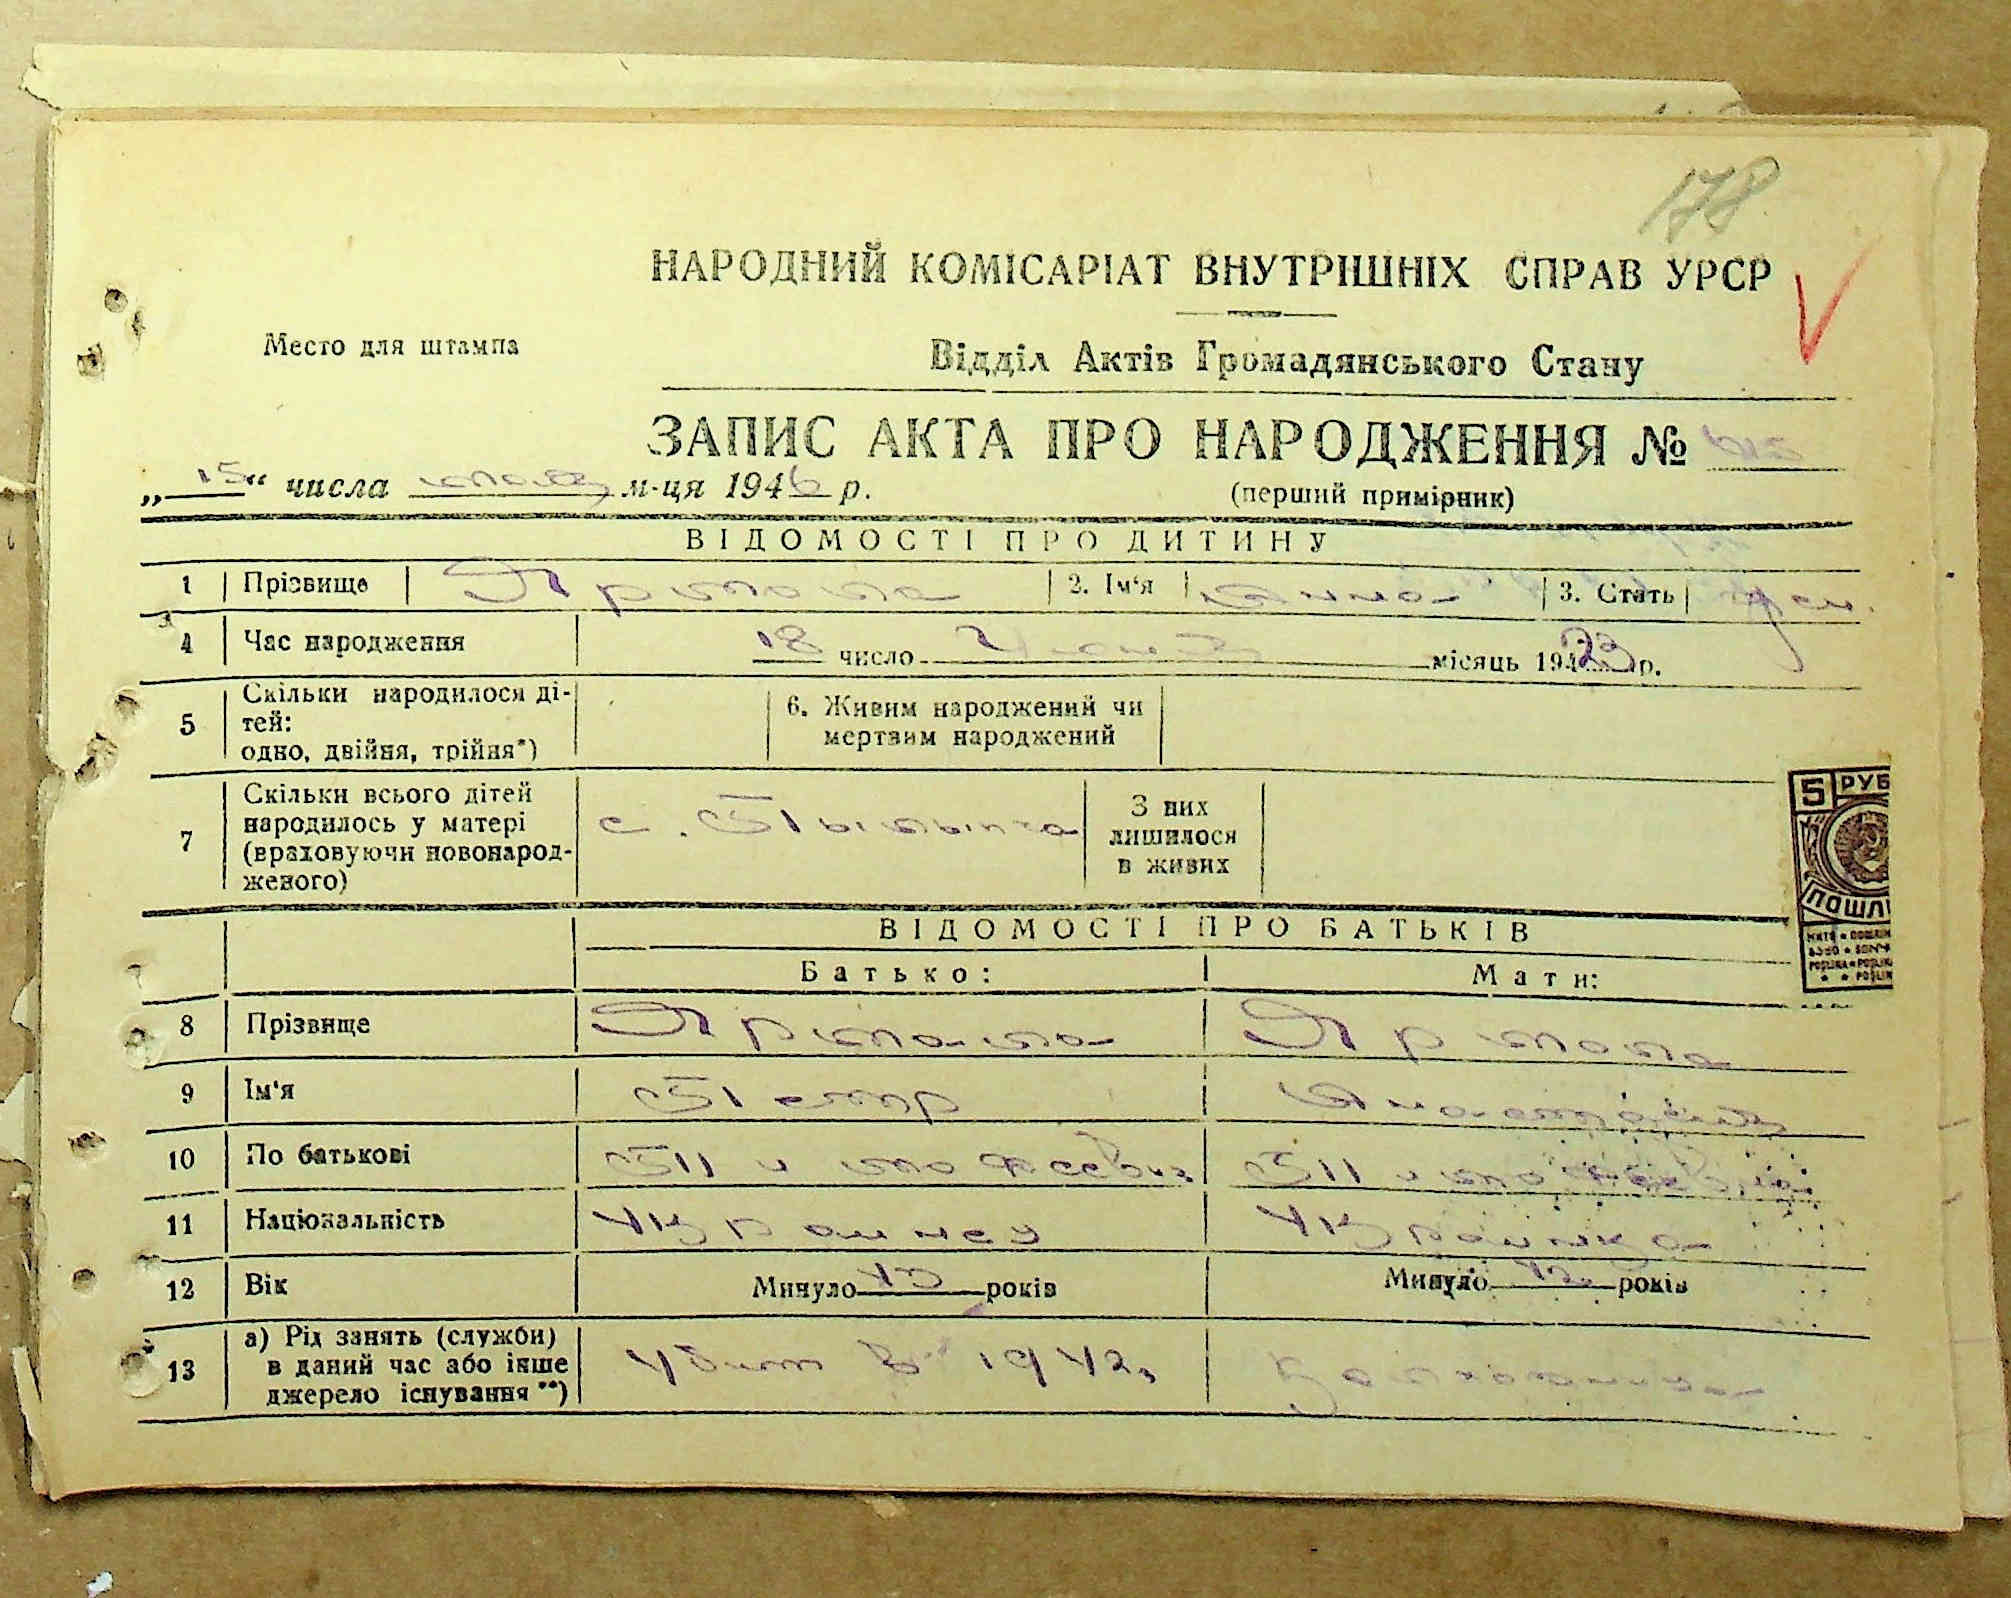 178
НАРОДНИЙ КОМІСАРІАТ ВНУТРІШНІХ СПРАВ УРСР
Место для штампа
Відділ Актів Громадянського Стану
ЗАПИС АКТА ПРО НАРОДЖЕННЯ №
„15“ числа м-ця 1946 р.
(перший примірник)
ВІДОМОСТІ ПРО ДИТИНУ
1 Прізвище 2. Ім'я Анна 3. Стать жен.
4 Час народження 18 число місяць 1923 р.
5 Скільки народилося ді-
тей:
одно, двійня, трійня*)
6. Живим народжений чи
мертвим народжений
7 Скільки всього дітей
народилось у матері
(враховуючи новонарод-
женого)
с.
З них
лишилося
в живих
5 РУБ
ПОШЛ
ВІДОМОСТІ ПРО БАТЬКІВ
Батько: Мати:
8 Прізвище
9 Ім'я Петр Анастасия
10 По батькові Тимофеевич Тимофеевна
11 Національність Украинец Украинка
12 Вік Минуло 43 років Минуло 42 років
13 а) Рід занять (служби)
в даний час або інше
джерело існування **)
Убит в 1942г
Колхозница